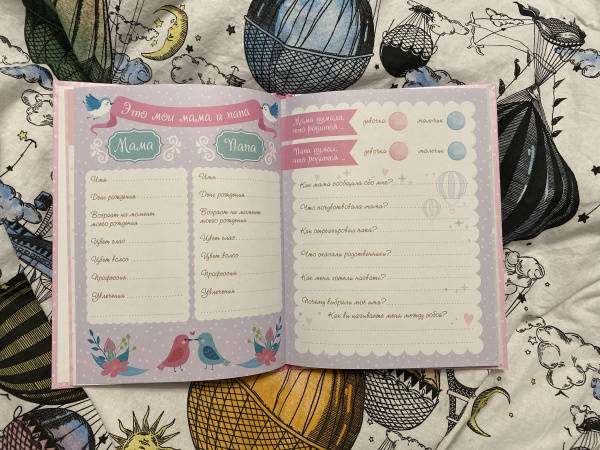 Это мои мама и папа
Мама
Имя
День рождения
Возраст на момент
моего рождения
Цвет глаз
Цвет волос
Профессия
Увлечения
Папа
Имя
День рождения
Возраст на момент
моего рождения
Цвет глаз
Цвет волос
Профессия
Увлечения
Мама думала,
что родится...
девочка
мальчик
Папа думал,
что родится...
девочка
мальчик
Как мама сообщила обо мне?
Что почувствовала мама?
Как отреагировал папа?
Что сказали родственники?
Как меня хотели назвать?
Почему выбрали моё имя?
Как вы называете меня между собой?